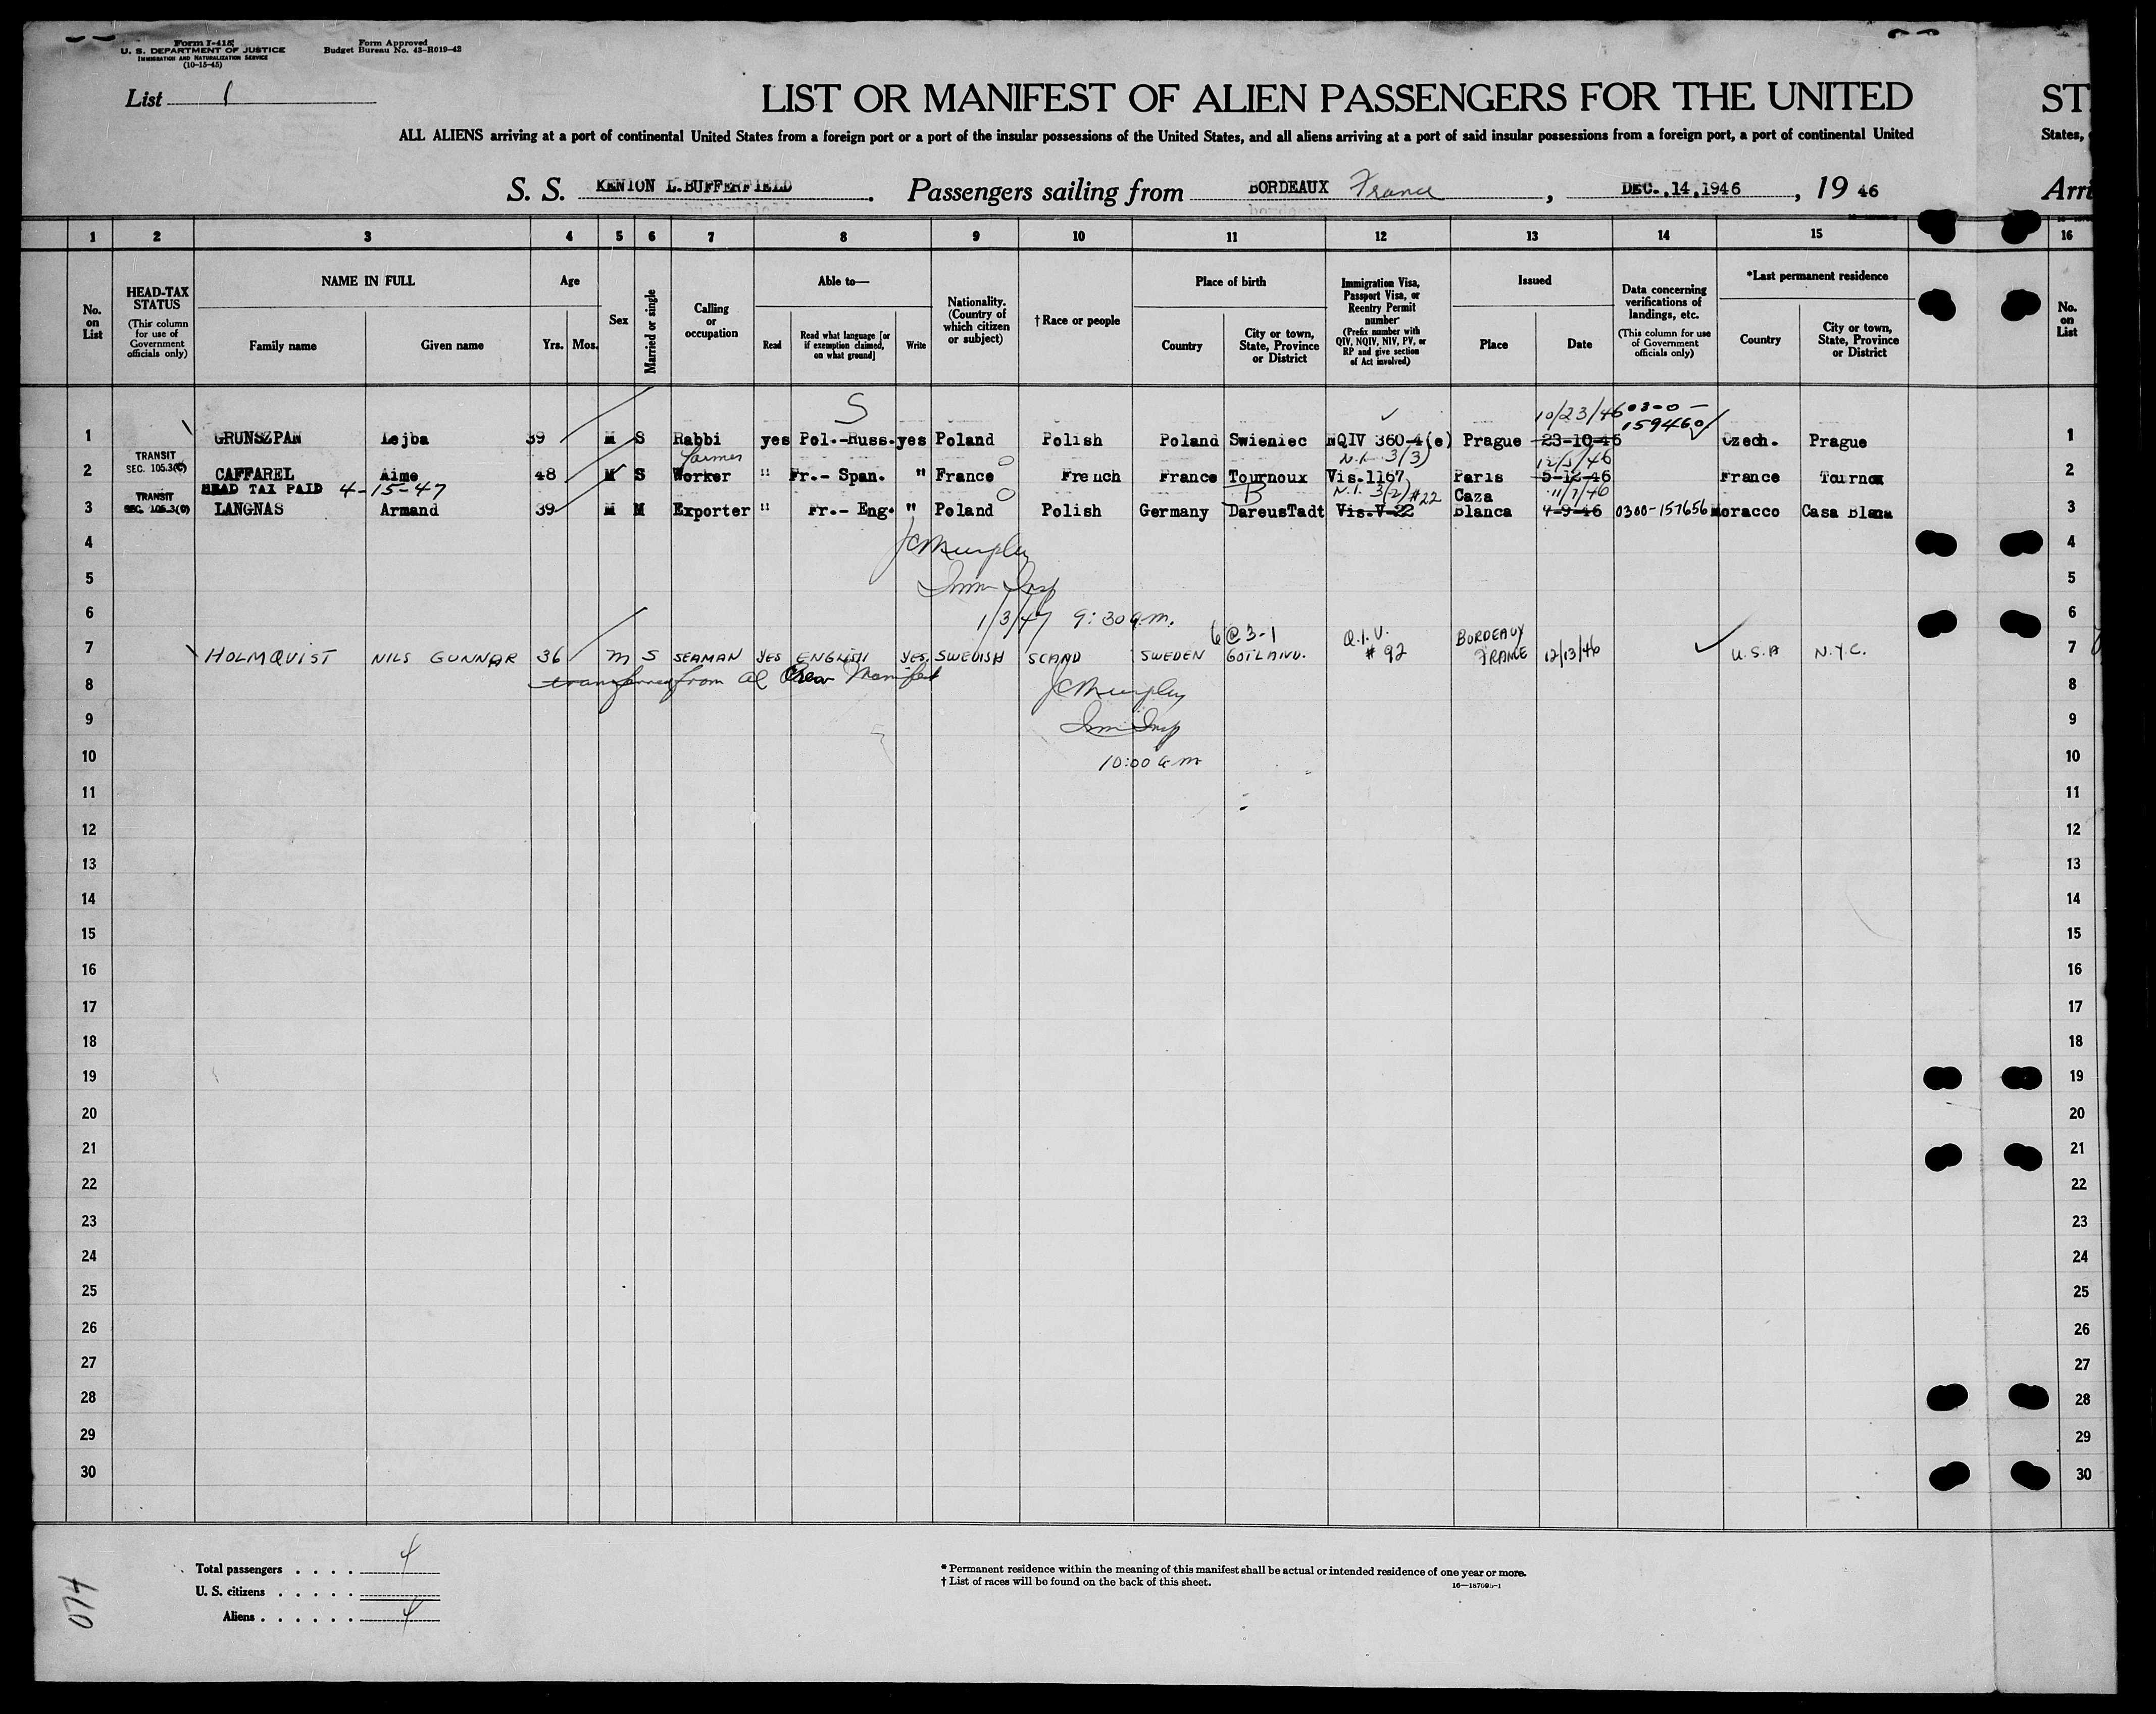 Form I-415
U. S. DEPARTMENT OF JUSTICE
IMMIGRATION AND NATURALIZATION SERVICE
(10-15-45)
Form Approved
Budget Bureau No. 43-R019-42
List 1
LIST OR MANIFEST OF ALIEN PASSENGERS FOR THE UNITED ST
ALL ALIENS arriving at a port of continental United States from a foreign port or a port of the insular possessions of the United States, and all aliens arriving at a port of said insular possessions from a foreign port, a port of continental United States,
S. S. KENION L.BUFFERFIELD. Passengers sailing from BORDEAUX France, DEC.,14,1946, 19 46 Arri
1 2 3 4 5 6 7 8 9 10 11 12 13 14 15 16
No. on List
HEAD-TAX STATUS
(This column for use of Government officials only)
NAME IN FULL
Family name
Given name
Age
Yrs. Mos.
Sex
Married or single
Calling or occupation
Able to—
Read
Read what language [or if exemption claimed, on what ground]
Write
Nationality. (Country of which citizen or subject)
†Race or people
Place of birth
Country
City or town, State, Province or District
Immigration Visa, Passport Visa, or Reentry Permit number
(Prefix number with QIV, NQIV, NIV, PV, or RP and give section of Act involved)
Issued
Place
Date
Data concerning verifications of landings, etc.
(This column for use of Government officials only)
*Last permanent residence
Country
City or town, State, Province or District
No. on List
S 10/23/46 0300-
159460
1 GRUNSZPAN Lejba 39 M S Rabbi yes Pol.-Russ. yes Poland Polish Poland Swieniec NQIV 360-4(e) Prague 23-10-46 Czech. Prague 1
TRANSIT
SEC. 105.3(C)
farmer N.I. 3/3) 12/5/46
2 CAFFAREL Aime 48 M S Worker " Fr.- Span. " France French France Tournoux Vis.1167 Paris 5-12-46 France Tournox 2
HEAD TAX PAID 4-15-47
TRANSIT
SEC. 105.3(C)
B N.I. 3/2) #22 Caza
3 LANGNAS Armand 39 M M Exporter " Fr.- Eng. " Poland Polish Germany DareusTadt Vis.V-22 Blanca 4-9-46 0300-157656 Moracco Casa Blana 3
4 JC Murphy 4
5 Imm Insp 5
6 1/3/47 9:30 a.m. 6
6@3-1
7 HOLMQVIST NILS GUNNAR 36 M S SEAMAN YES ENGLISH YES SWEDISH SCAND SWEDEN GOTLAND. Q.I.V. #92 BORDEAUX FRANCE 12/13/46 U.S.A N.Y.C. 7
8 transferred from al Crew Manifest JC Murphy 8
9 Imm Insp 9
10 10:00 a m 10
11 11
12 12
13 13
14 14
15 15
16 16
17 17
18 18
19 19
20 20
21 21
22 22
23 23
24 24
25 25
26 26
27 27
28 28
29 29
30 30
Total passengers . . . . 4
U. S. citizens . . . . .
Aliens . . . . . . 4
* Permanent residence within the meaning of this manifest shall be actual or intended residence of one year or more.
† List of races will be found on the back of this sheet.
074